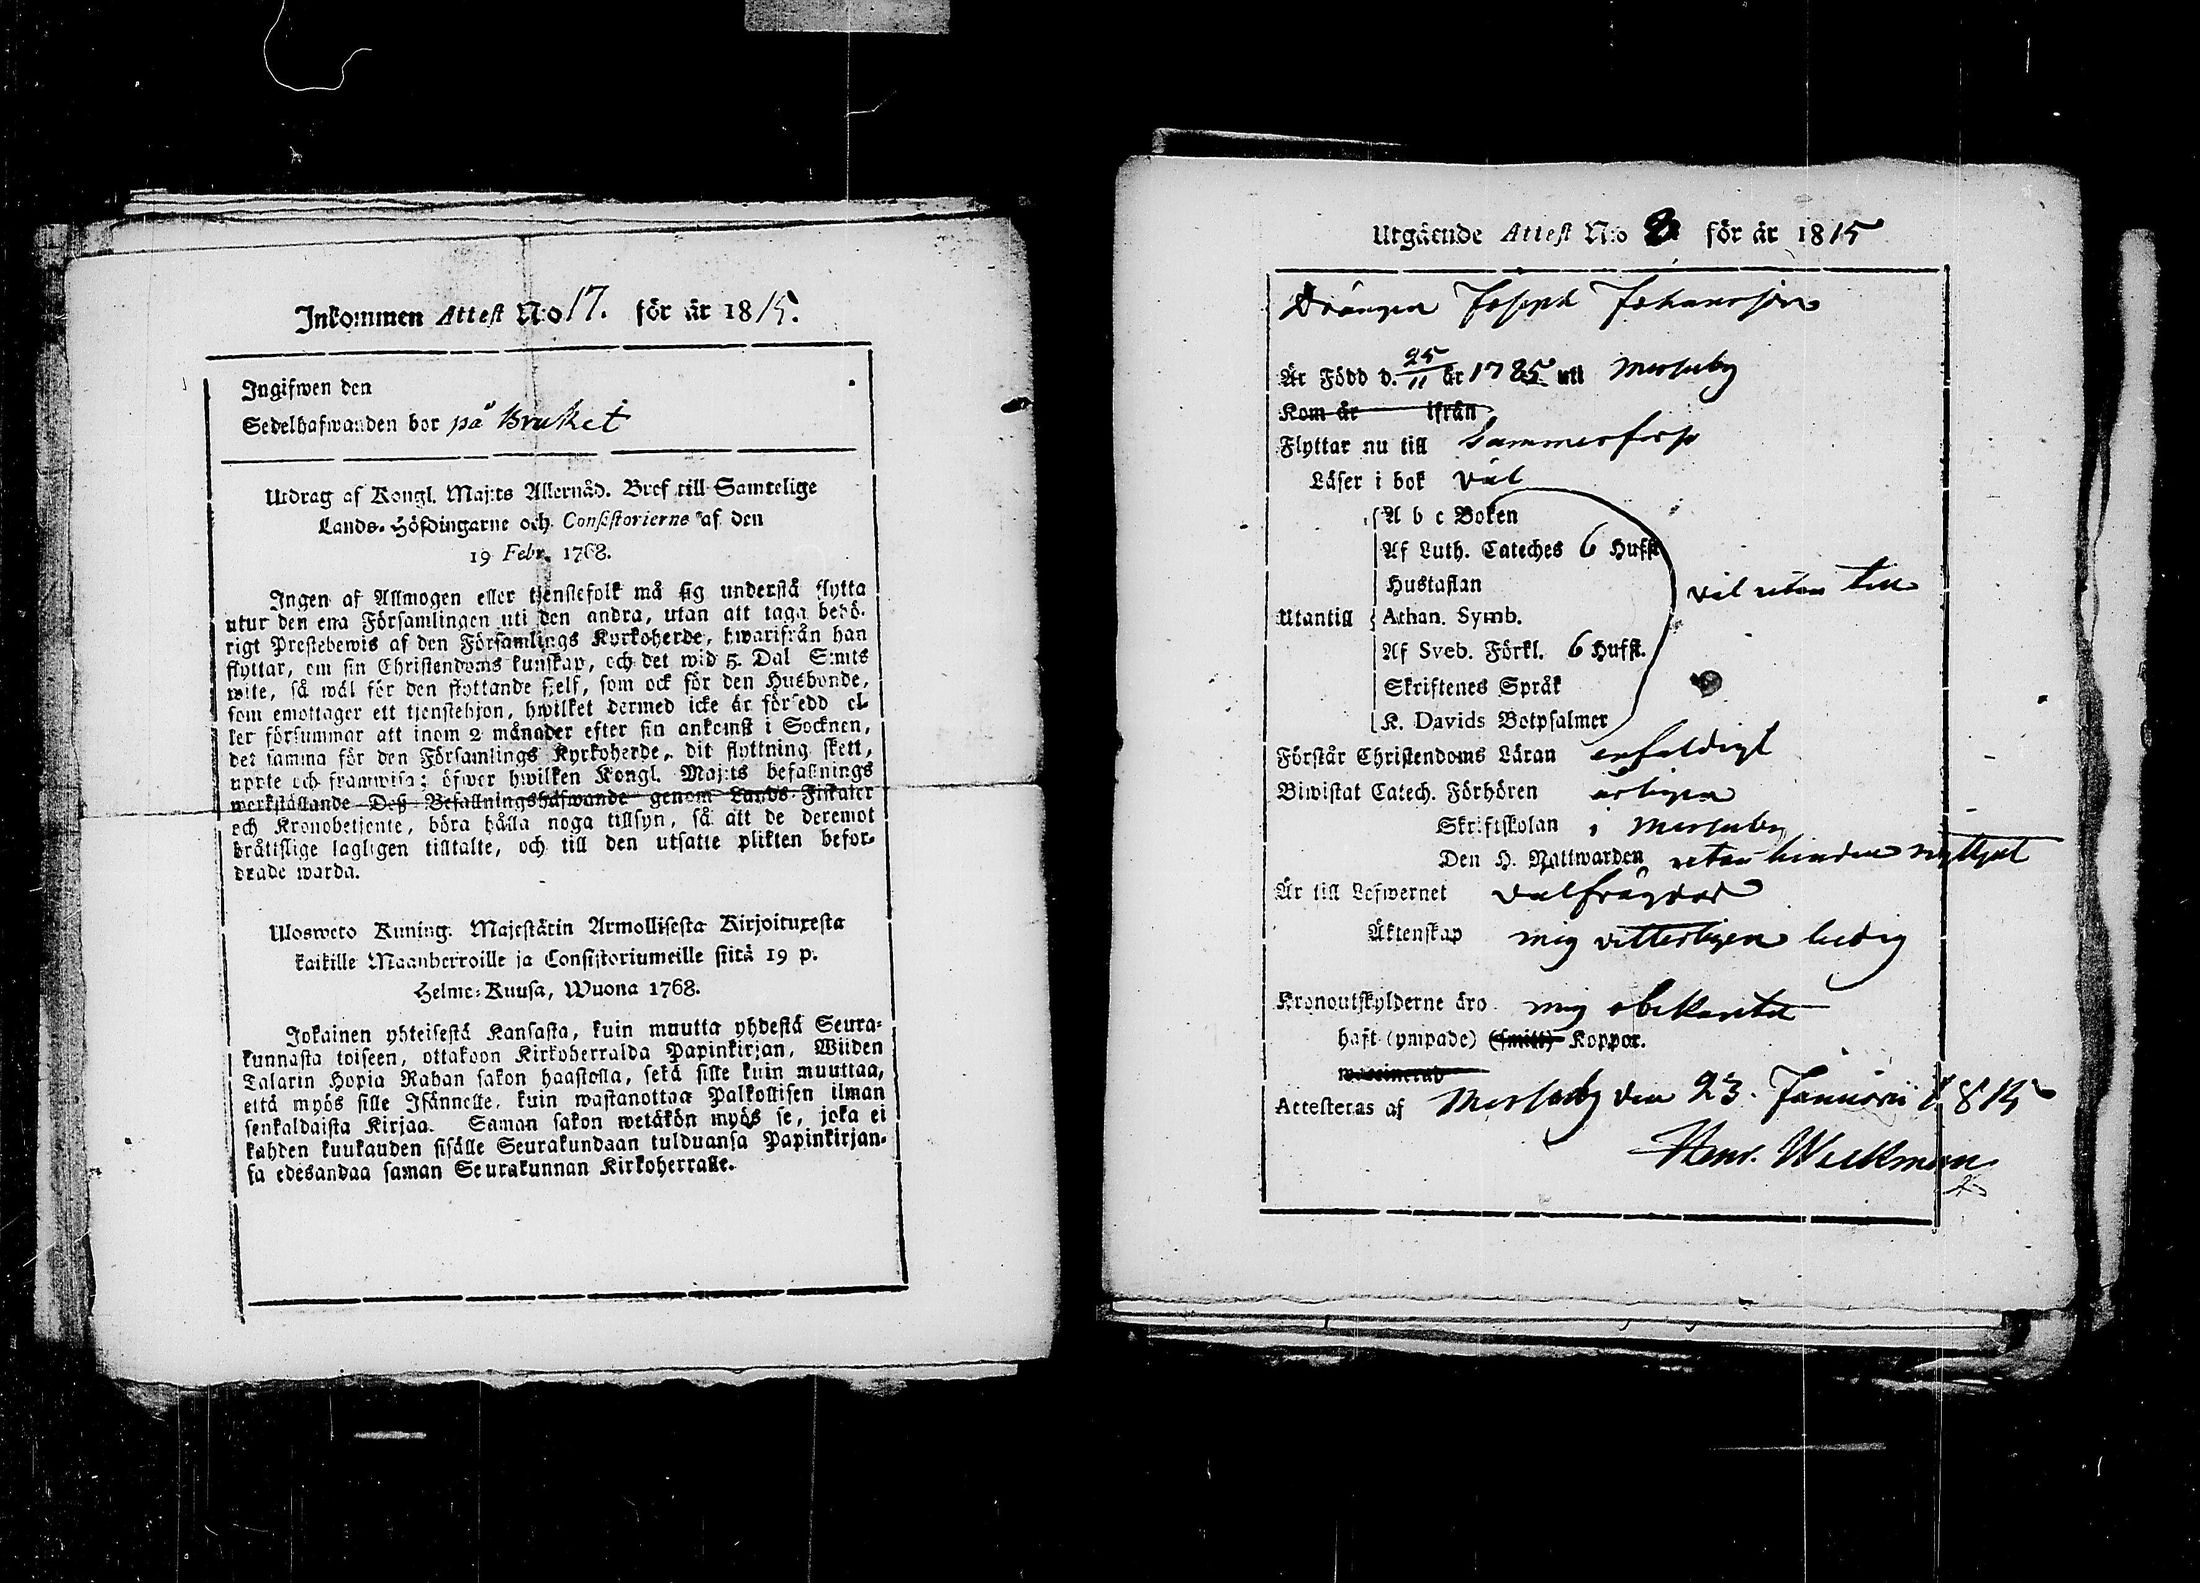 Inkommen Attest N:o 17. för år 1815.
Ingifwen den
Sedelhafwanden bor på Bruket
Utdrag af Kongl. Maj:ts Allernåd. Bref till Samtelige
Lands-Höfdingarne och Consistorierne af den
19 Febr. 1768.
Ingen af Allmogen eller tjenstefolk må sig understå flytta
utur den ena Församlingen uti den andra, utan att taga behö-
rigt Prestebewis af den Församlings Kyrkoherde, hwarifrån han
flyttar, om sin Christendoms kunskap, och det wid 5. Dal S:mts
wite, så wäl för den flyttande sjelf, som ock för den Husbonde,
som emottager ett tjenstehjon, hwilket dermed icke är försedd el-
ler försummar att inom 2 månader efter sin ankomst i Socknen,
det samma för den Församlings Kyrkoherde, dit flyttning skett,
uppte och framwisa; öfwer hwilken Kongl. Maj:ts befallnings
werkställande Deß Befallningshafwande genom Lands-Fiskaler
och Kronobetjente, böra hålla noga tillsyn, så att de deremot
bråtislige lagligen tilltalte, och till den utsatte plikten befor-
drade warda.
Ulosweto Kuning. Majestätin Armollisesta Kirjoituxesta
kaikille Maanherroille ja Consistoriumeille siitä 19 p.
Helme-Kuusa, Wuona 1768.
Jokainen yhteisestä Kansasta, kuin muutta yhdestä Seura-
kunnasta toiseen, ottakoon Kirkoherralda Papinkirjan, Wiiden
Talarin Hopia Rahan sakon haastolla, sekä sille kuin muuttaa,
että myös sille Isännelle, kuin wastanottaa Palkollisen ilman
senkaldaista Kirjaa. Saman sakon wetäkön myös se, joka ei
kahden kuukauden sisälle Seurakundaan tulduansa Papinkirjan-
sa edesandaa saman Seurakunnan Kirkoherralle.
Utgående Attest N:o 3 för år 1815
Drängen Joseph Johansson
Är Född d. 25/11 år 1785 uti Messuby
Kom år ifrån
Flyttar nu till Tammerfors
Läser i bok väl
A b c Boken
Af Luth. Cateches 6 Hufst
Hustaflan
Utantill Athan. Symb.
väl utan till
Af Sveb. Förkl. 6 Hufst.
Skriftenes Språk
K. Davids Botpsalmer
Förstår Christendoms Läran enfaldigt
Biwistat Catech. Förhören årligen
Skriftskolan i Messuby
Den H. Nattwarden utan hinder nyttjat
Är till Lefwernet välfrägdad
Äktenskap mig vitterligen ledig
Kronoutskylderne äro mig obekanta
haft (ympade) (smitt) Koppor.
waccinerad
Attesteras af Messuby den 23. Januarii 1815
Henr. Weckman